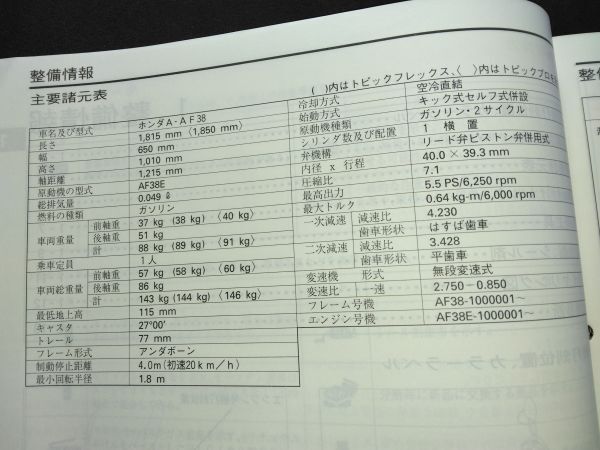 整備情報
主要諸元表
( )内はトピックフレックス、〈 〉内はトピックプロ
車名及び型式 ホンダA-AF38
長さ 1,815 mm 〈1,850 mm〉
幅 650 mm
高さ 1,010 mm
軸距離 1,215 mm
原動機の型式 AF38E
総排気量 0.049 ℓ
燃料の種類 ガソリン
車両重量 前軸重 37 kg (38 kg) 〈40 kg〉
後軸重 51 kg
計 88 kg (89 kg) 〈91 kg〉
乗車定員 1人
車両総重量 前軸重 57 kg (58 kg) 〈60 kg〉
後軸重 86 kg
計 143 kg (144 kg) 〈146 kg〉
最低地上高 115 mm
キャスタ 27°00′
トレール 77 mm
フレーム形式 アンダボーン
制動停止距離 4.0m(初速20km/h)
最小回転半径 1.8 m
冷却方式 空冷直結
始動方式 キック式セルフ式併設
原動機種類 ガソリン・2サイクル
シリンダ数及び配置 1 横置
弁機構 リード弁ピストン弁併用式
内径 x 行程 40.0 × 39.3 mm
圧縮比 7.1
最高出力 5.5 PS/6,250 rpm
最大トルク 0.64 kg-m/6,000 rpm
一次減速 減速比 4.230
歯車形状 はすば歯車
二次減速 減速比 3.428
歯車形状 平歯車
変速機 形式 無段変速式
変速比 一速 2.750-0.850
フレーム号機 AF38-1000001~
エンジン号機 AF38E-1000001~